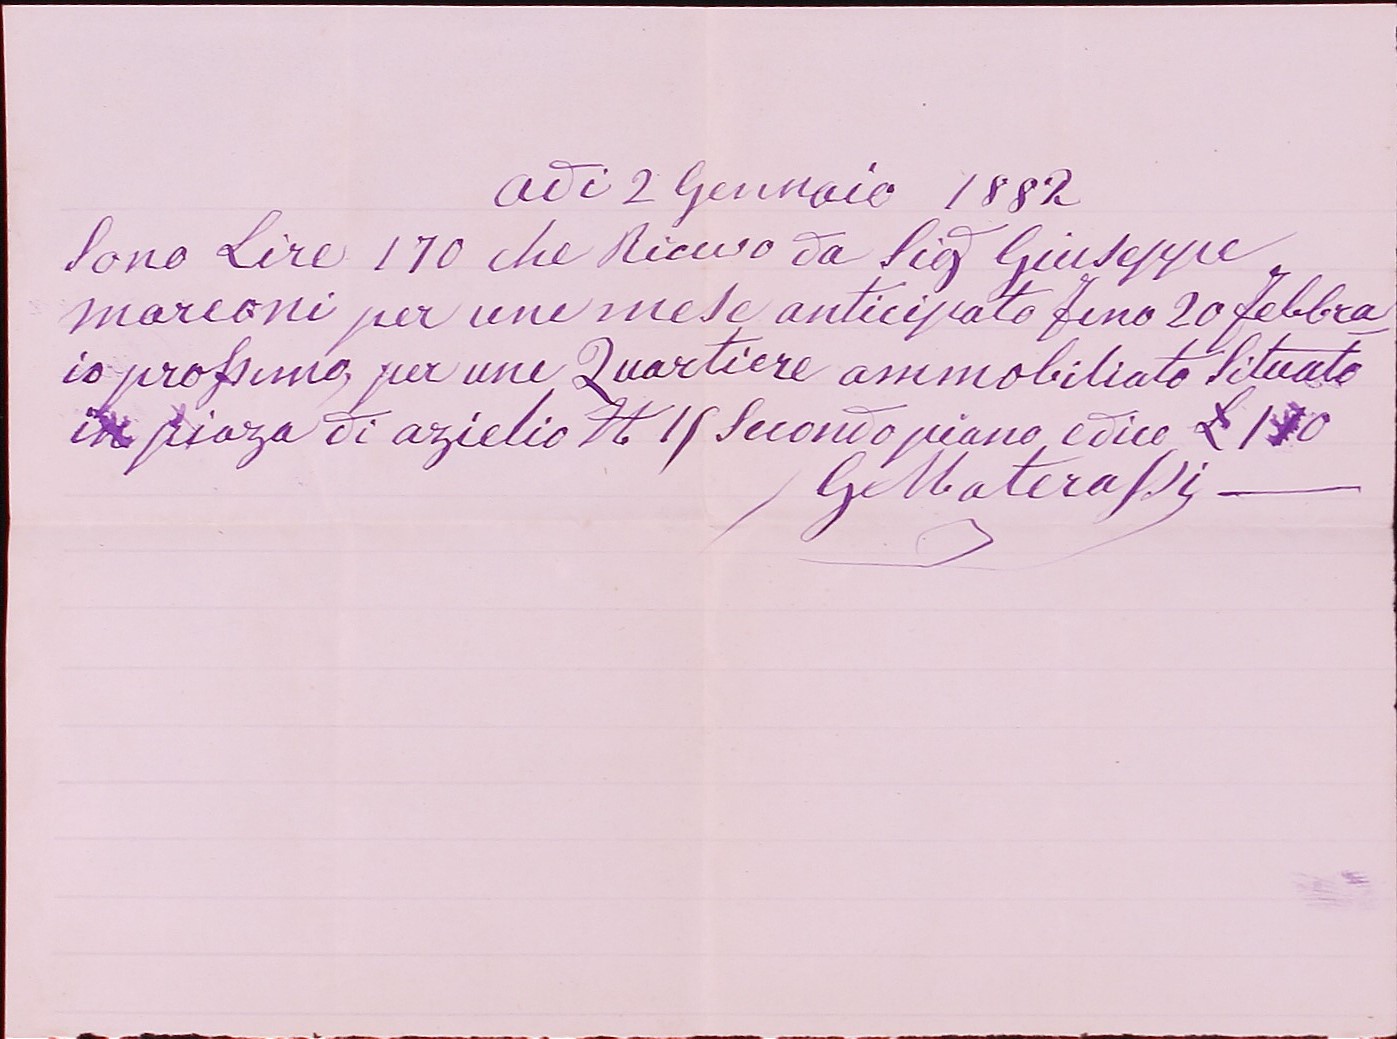 Adi 2 Gennaio 1882
Sono Lire 170 che Ricevo da Sig Giuseppe
marconi per une mese anticipato fino 20 febbra
io prossimo, per une Quartiere ammobiliato Situato
in piaza di azielio N 15 Secondo piano, e dico £ 170
G Materassi